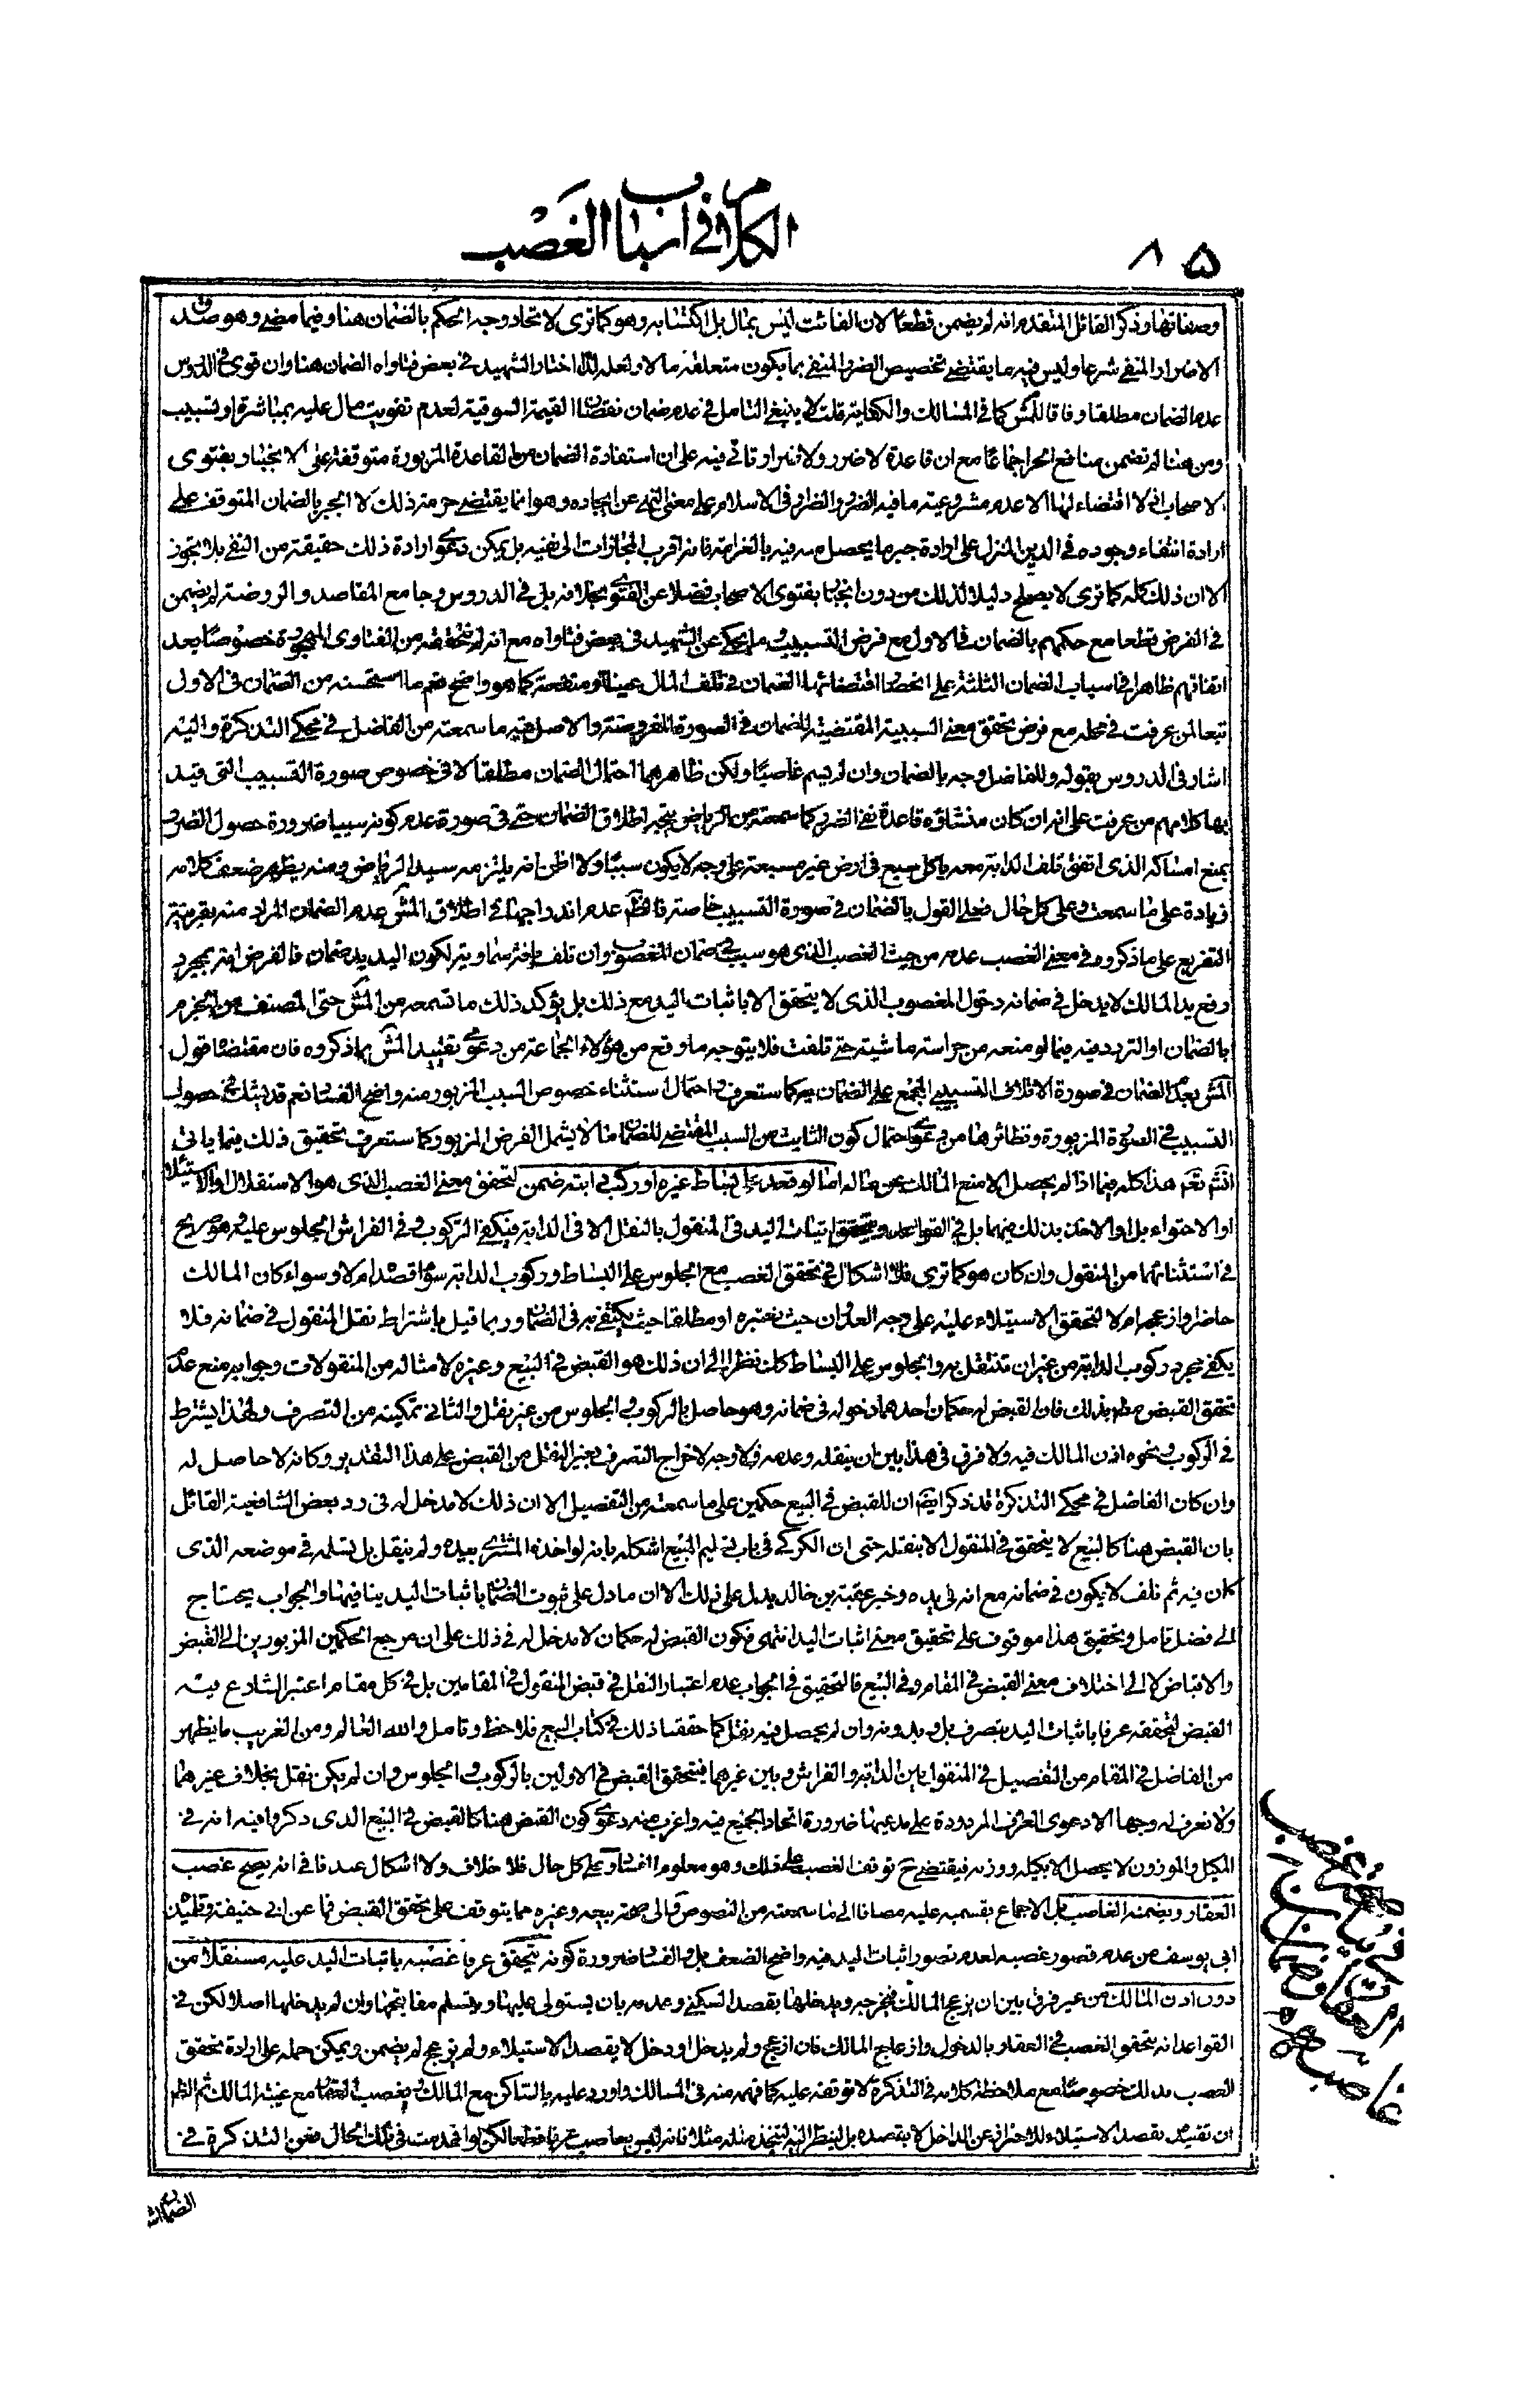 الكلام في اسباب الغصب
٨٥
وصفاتها وذكر القائل المتقدم انه لم يضمن قطعا لان الفائت ليس بمال بل اكتسابه وهو كما ترى لاتحاد وجه الحكم بالضمان هنا وفيما مضى وهو صدق
الاضرار المنفي شرعا وليس فيه ما يقتضي تخصيص الضرر المنفي بما يكون متعلقه مالا ولعله لذا اختار الشهيد في بعض فتاواه الضمان هنا وان قوى في الدروس
عدم الضمان مطلقا وفاقا للمش كما في المسالك والكفاية قلت لا ينبغي التامل في عدم ضمان نقصان القيمة السوقية لعدم تفويت مال عليه بمباشرة او تسبيب
ومن هنا لم تضمن منافع الحر اجماعا مع ان قاعدة لا ضرر ولا ضرار وقاتي فيه على ان استفادة الضمان من القاعدة المزبورة متوقفة على الانجبار بفتوى
الاصحاب اذ لا اقتضاء لها الا عدم مشروعية ما فيه الضرر والضرار في الاسلام على معنى النهي عن ايجاده وهو انما يقتضي حرمة ذلك لا الجبر بالضمان المتوقف على
ارادة انتفاء وجوده في الدين المنزل على ارادة جبر ما يحصل منه فيه بالغرامة فانه اقرب المجازات الى نفيه بل يمكن دعوى ارادة ذلك حقيقة من النفي بلا تجوز
الا ان ذلك كله كما ترى لا يصلح دليلا لذلك من دون انجبار بفتوى الاصحاب فضلا عن الفتوى بخلافه بل في الدروس وجامع المقاصد والروضة لم يضمن
في الفرض قطعا مع حكمهم بالضمان في الاول مع فرض التسبيب وما يحكى عن الشهيد في بعض فتاواه مع انه لم نتحققه من الفتاوى المهجورة خصوصا بعد
اتفاقهم ظاهرا في اسباب الضمان الثلثة على انحصار اقتضائها الضمان في تلف المال عينا او منفعة كما هو واضح نعم ما استحسنه من الضمان في الاول
تبعا لمن عرفت في محله مع فرض تحقق معنى السببية المقتضية للضمان في الصورة المفروضة والاصل فيه ما سمعته من الفاضل في محكي التذكرة واليه
اشار في الدروس بقوله وللفاضل وجه بالضمان وان لم يسم غاصبا ولكن ظاهرهما احتمال الضمان مطلقا لا في خصوص صورة التسبيب التي قيد
بها كلامهم من عرفت على انه ان كان منشاؤه قاعدة نفي الضرر كما سمعته من الرياض يتجه اطلاق الضمان حتى في صورة عدم كونه سببا ضرورة حصول الضرر
بمنع امساكه الذي اتفق تلف الدابة معه باكل سبع في ارض غير مسبعة على وجه لا يكون سببا ولا اظن انه يلتزمه سيد الرياض ومنه يظهر ضعف كلامه
زيادة على ما سمعت وعلى كل حال فعلى القول بالضمان في صورة التسبيب خاصة فالظم عدم اندراجها في اطلاق المش عدم الضمان المراد منه بقرينة
التفريع على ما ذكروه في معنى الغصب عدمه من حيث الغصب الذي هو سبب في ضمان المغصوب وان تلف بافة سماوية لكون اليد يد ضمان فالفرض انه بمجرد
رفع يد المالك لا يدخل في ضمانه دخول المغصوب الذي لا يتحقق الا باثبات اليد مع ذلك بل يؤكد ذلك ما تسمعه من المش حتى المصنف من الجزم
بالضمان او التردد فيه فيما لو منعه من حراسة ماشيته حتى تلفت فلا يتوجه ما وقع من هؤلاء الجماعة من دعوى تقييد المش بما ذكروه فان مقتضاه قول
المش بعدم الضمان في صورة الاتلاف التسبيبي المجمع على الضمان به كما ستعرف واحتمال استثناء خصوص السبب المزبور منه واضح الفساد نعم قد يشك في حصول
التسبيب في الصورة المزبورة ونظائرها من دعوى احتمال كون الثابت من السبب المقتضي للضمان ما لا يشمل الفرض المزبور كما ستعرف تحقيق ذلك فيما ياتي
انش تعم هذا كله فيما اذا لم يحصل الا منع المالك عن ماله اما لو قعد على بساط غيره او ركب دابته ضمن لتحقق معنى الغصب الذي هو الاستقلال والاستيلاء
او الاحتواء بل او الاخذ بذلك فيهما بل في القواعد ويتحقق اثبات اليد في المنقول بالنقل الا في الدابة فيكفي الركوب وفي الفراش الجلوس عليه وهو صريح
في استثنائهما من المنقول وان كان هو كما ترى فلا اشكال في تحقق الغصب مع الجلوس على البساط وركوب الدابة سواء قصد ام لا وسواء كان المالك
حاضرا وازعجه ام لا لتحقق الاستيلاء عليه على وجه العدوان حيث نعتبره او مطلقا حيث يكتفي به في الضمان وربما قيل باشتراط نقل المنقول في ضمانه فلا
يكفي مجرد ركوب الدابة من غير ان تنتقل به والجلوس على البساط كك نظرا الى ان ذلك هو القبض في البيع وغيره لامثاله من المنقولات وجوابه منع عدم
تحقق القبض مطم بذلك فان القبض له حكمان احدهما دخوله في ضمانه وهو حاصل بالركوب والجلوس من غير نقل والثاني تمكينه من التصرف ولهذا يشترط
في الركوب ونحوه اذن المالك فيه ولا فرق في هذا بين ان ينقله وعدمه ولا وجه لاخراج التصرف بغير النقل من القبض على هذا التقدير وكانه لا حاصل له
وان كان الفاضل في محكي التذكرة قد ذكر ايضم ان للقبض في البيع حكمين على ما سمعته من التفصيل الا ان ذلك لا مدخل له في رد بعض الشافعية القائل
بان القبض هنا كالبيع لا يتحقق في المنقول الا بنقله حتى ان الكركي في باب تسليم المبيع اشكله بانه لو اخذه المشتري بيده ولم ينقل بل تسلمه في موضعه الذي
كان فيه ثم تلف لا يكون في ضمانه مع انه في يده وخبر عقبة بن خالد يدل على ذلك الا ان ما دل على ثبوت الضمان باثبات اليد ينافيها والجواب يحتاج
الى فضل تامل وتحقيق هذا موقوف على تحقيق معنى اثبات اليد انتهى فكون القبض له حكمان لا مدخل له في ذلك على ان مرجع الحكمين المزبورين الى القبض
والاقباض لا الى اختلاف معنى القبض في المقام وفي البيع فالتحقيق في الجواب عدم اعتبار النقل في قبض المنقول في المقامين بل في كل مقام اعتبر الشارع فيه
القبض لتحققه عرفا باثبات اليد بتصرف بل وبدونه وان لم يحصل فيه نقل كما حققنا ذلك في كتاب البيع فلاحظ وتامل والله العالم ومن الغريب ما يظهر
من الفاضل في المقام من التفصيل في المنقول بين الدابة والفراش وبين غيرهما فيتحقق القبض في الاولين بالركوب والجلوس وان لم يكن نقل بخلاف غيرهما
ولا نعرف له وجها الا دعوى العرف المردودة على مدعيها ضرورة اتحاد الجميع فيه واغرب منه دعوى كون القبض هنا كالقبض في البيع الذي ذكروا فيه انه في
المكيل والموزون لا يحصل الا بكيله ووزنه فيقتضي ح توقف الغصب على ذلك وهو معلوم الفساد وعلى كل حال فلا خلاف ولا اشكال عندنا في انه يصح غصب
العقار ويضمنه الغاصب بل الاجماع بقسميه عليه مضافا الى ما سمعته من النصوص والى صحة بيعه وغيره مما يتوقف على تحقق القبض فما عن ابي حنيفة وتلميذه
ابي يوسف من عدم تصور غصبه لعدم تصور اثبات اليد فيه واضح الضعف بل والفساد ضرورة كونه يتحقق عرفا غصبه باثبات اليد عليه مستقلا من
دون اذن المالك من غير فرق بين ان يزعج المالك فيخرجه ويدخلها بقصد السكنى وعدمه بان يستولى عليها ويتسلم مفاتيحها وان لم يدخلها اصلا لكن في
القواعد انه يتحقق الغصب في العقار بالدخول وازعاج المالك فان ازعج ولم يدخل او دخل لا بقصد الاستيلاء ولم يزعج لم يضمن ويمكن حمله على ارادة تحقق
الغصب بذلك خصوصا مع ملاحظة كلامه في التذكرة لا توقفه عليه كما فهمه منه في المسالك واورد عليه بالساكن مع المالك وبغصب العقار مع غيبة المالك ثم الظم
ان تقييده بقصد الاستيلاء للاحتراز عن الداخل لا بقصده بل لينظر اليه ليتخذ مثله مثلا فانه ليس بغاصب عرفا قطعا لكن لو انهدمت في تلك الحال فعن التذكرة في
الضمان